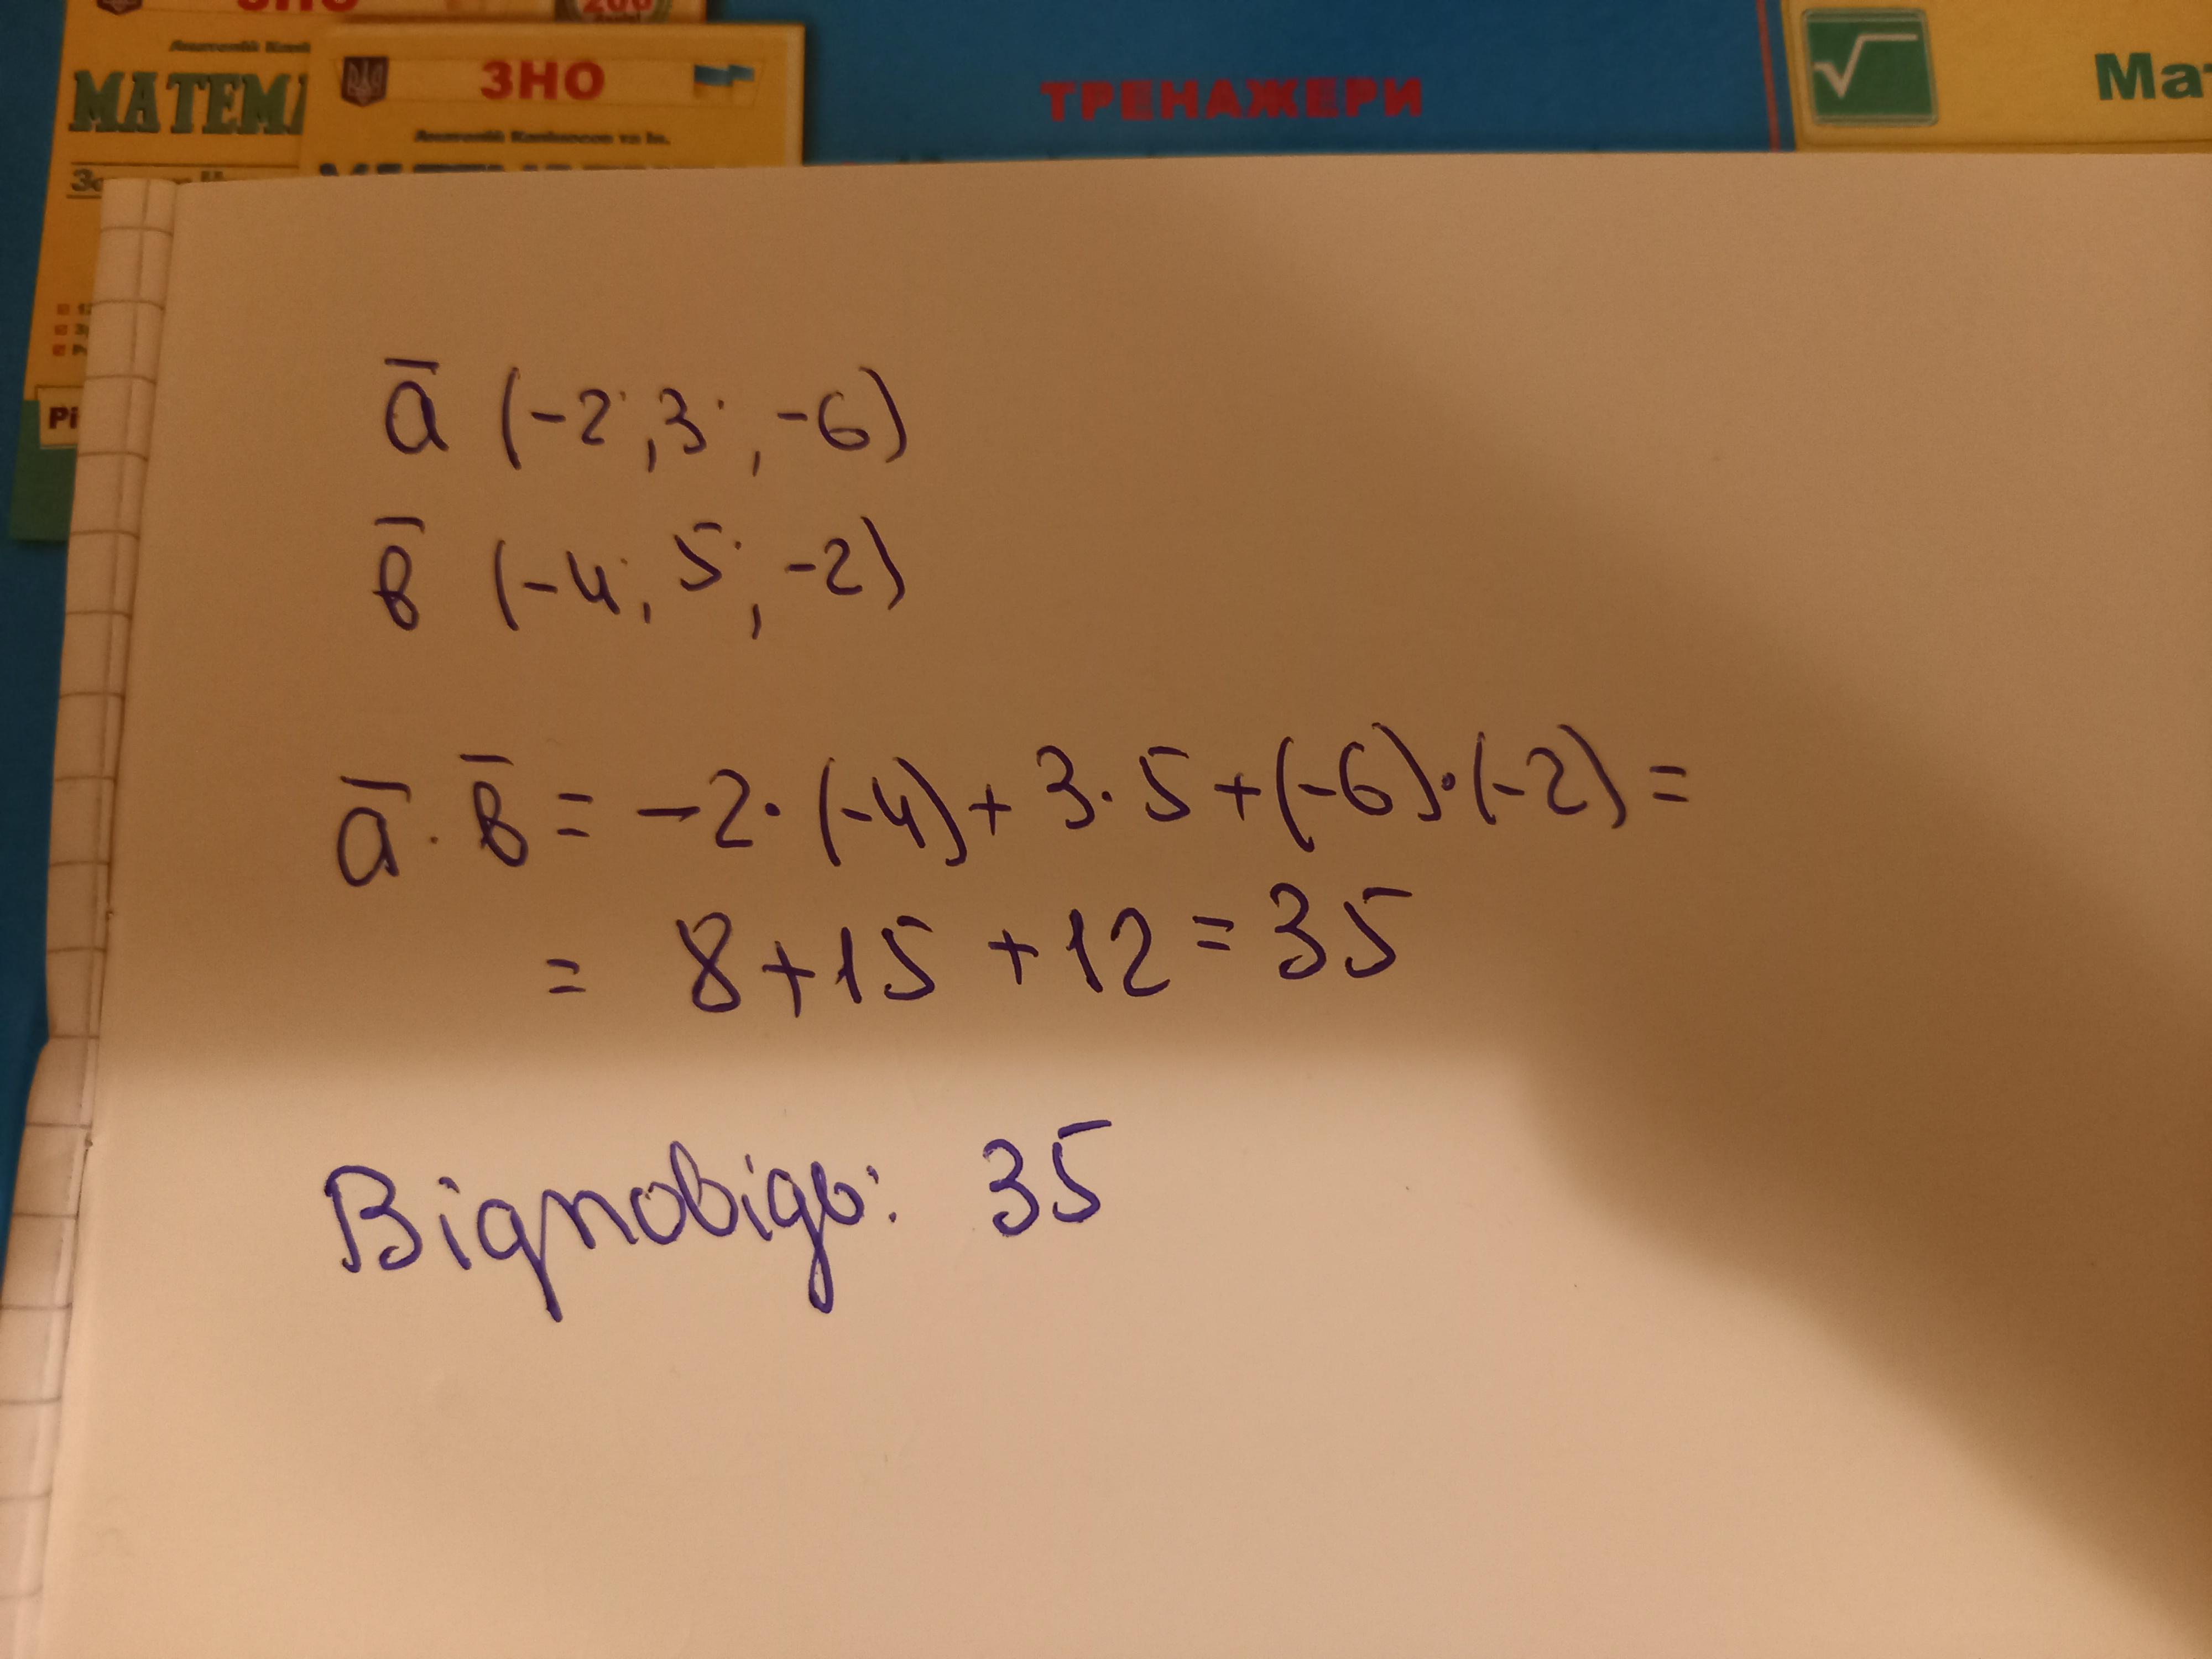 ЗНО
200
МАТЕМ
ЗНО
ТРЕНАЖЕРИ
Мат
a̅ (-2; 3; -6)
b̅ (-4; 5; -2)
a̅ · b̅ = -2 · (-4) + 3 · 5 + (-6) · (-2) =
= 8 + 15 + 12 = 35
Відповідь: 35